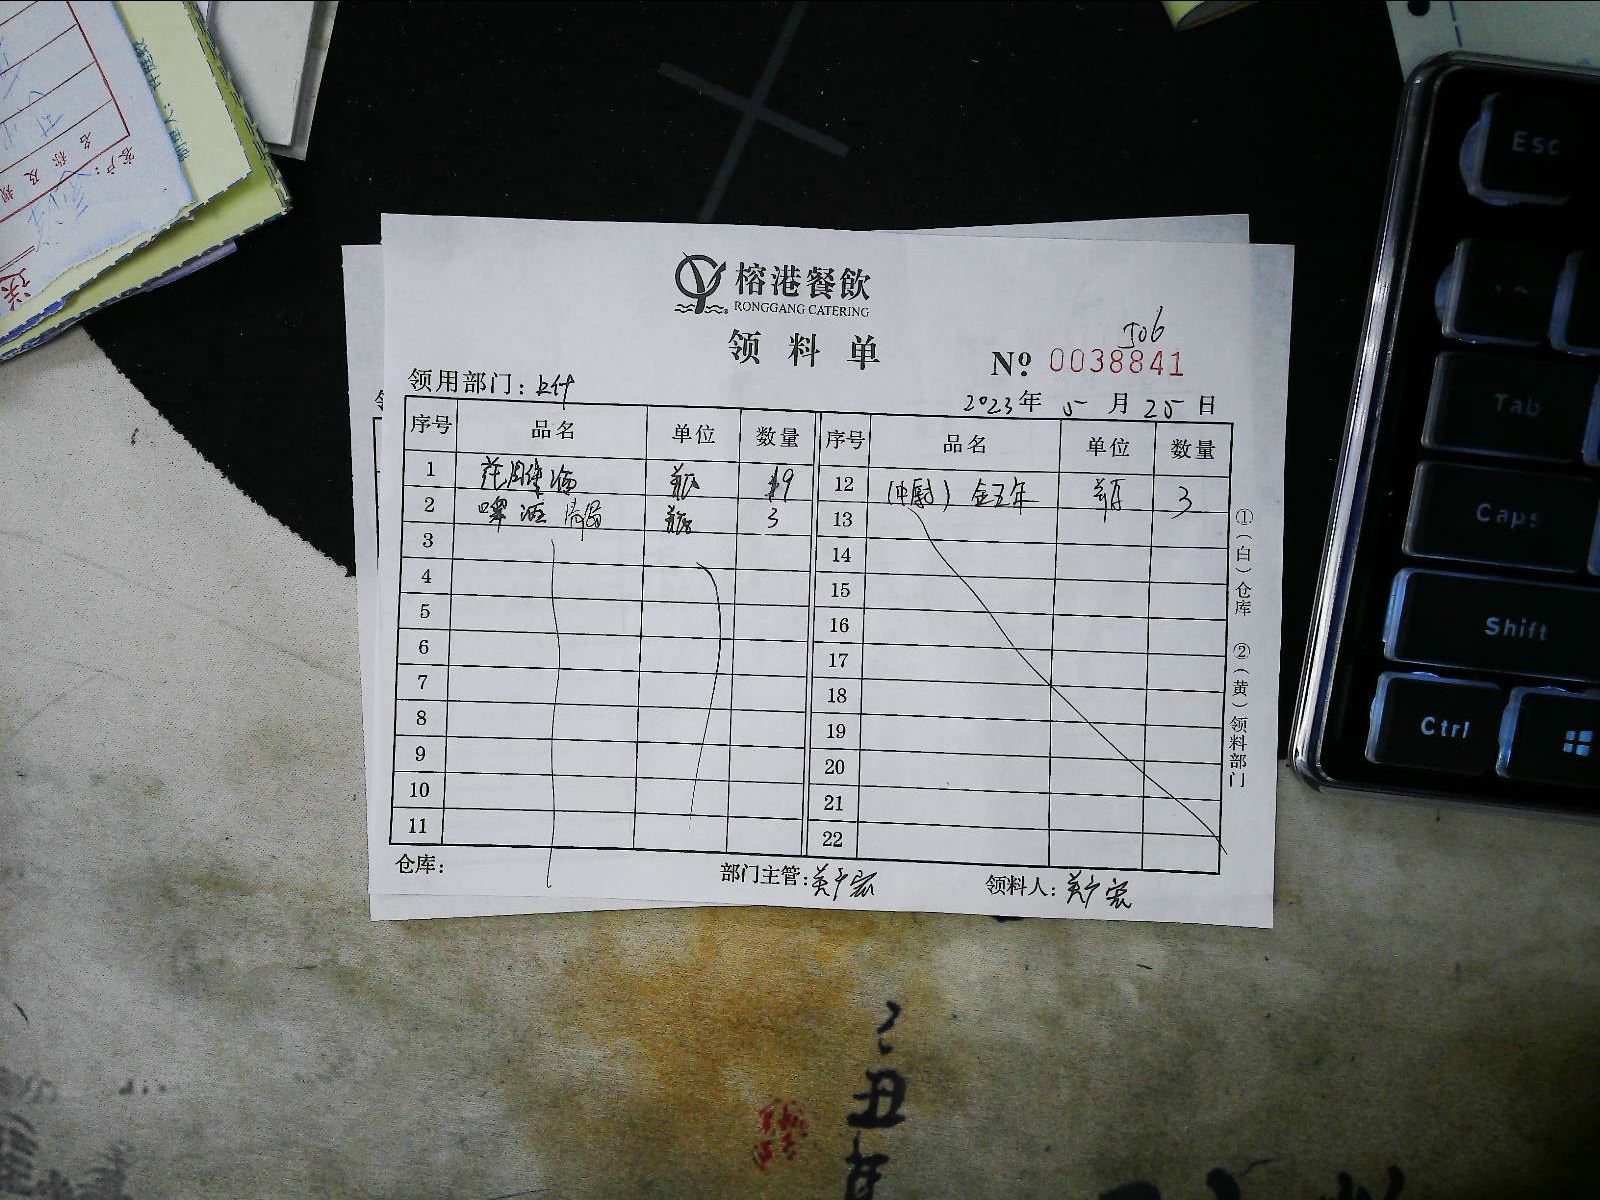 榕港餐飲
RONGGANG CATERING
领料单
J06
Nº 0038841
领用部门：上什
2023年 5 月 25 日
序号 品名 单位 数量 序号 品名 单位 数量
1 瓶 9 12 (中厨) 金五年 瓶 3
2 啤酒 青岛 瓶 3 13
3 14
4 15
5 16
6 17
7 18
8 19
9 20
10 21
11 22
仓库： 部门主管： 领料人：
①(白)仓库 ②(黄)领料部门
客户：
名称及规
送
Esc
Tab
Caps
Shift
Ctrl
丑